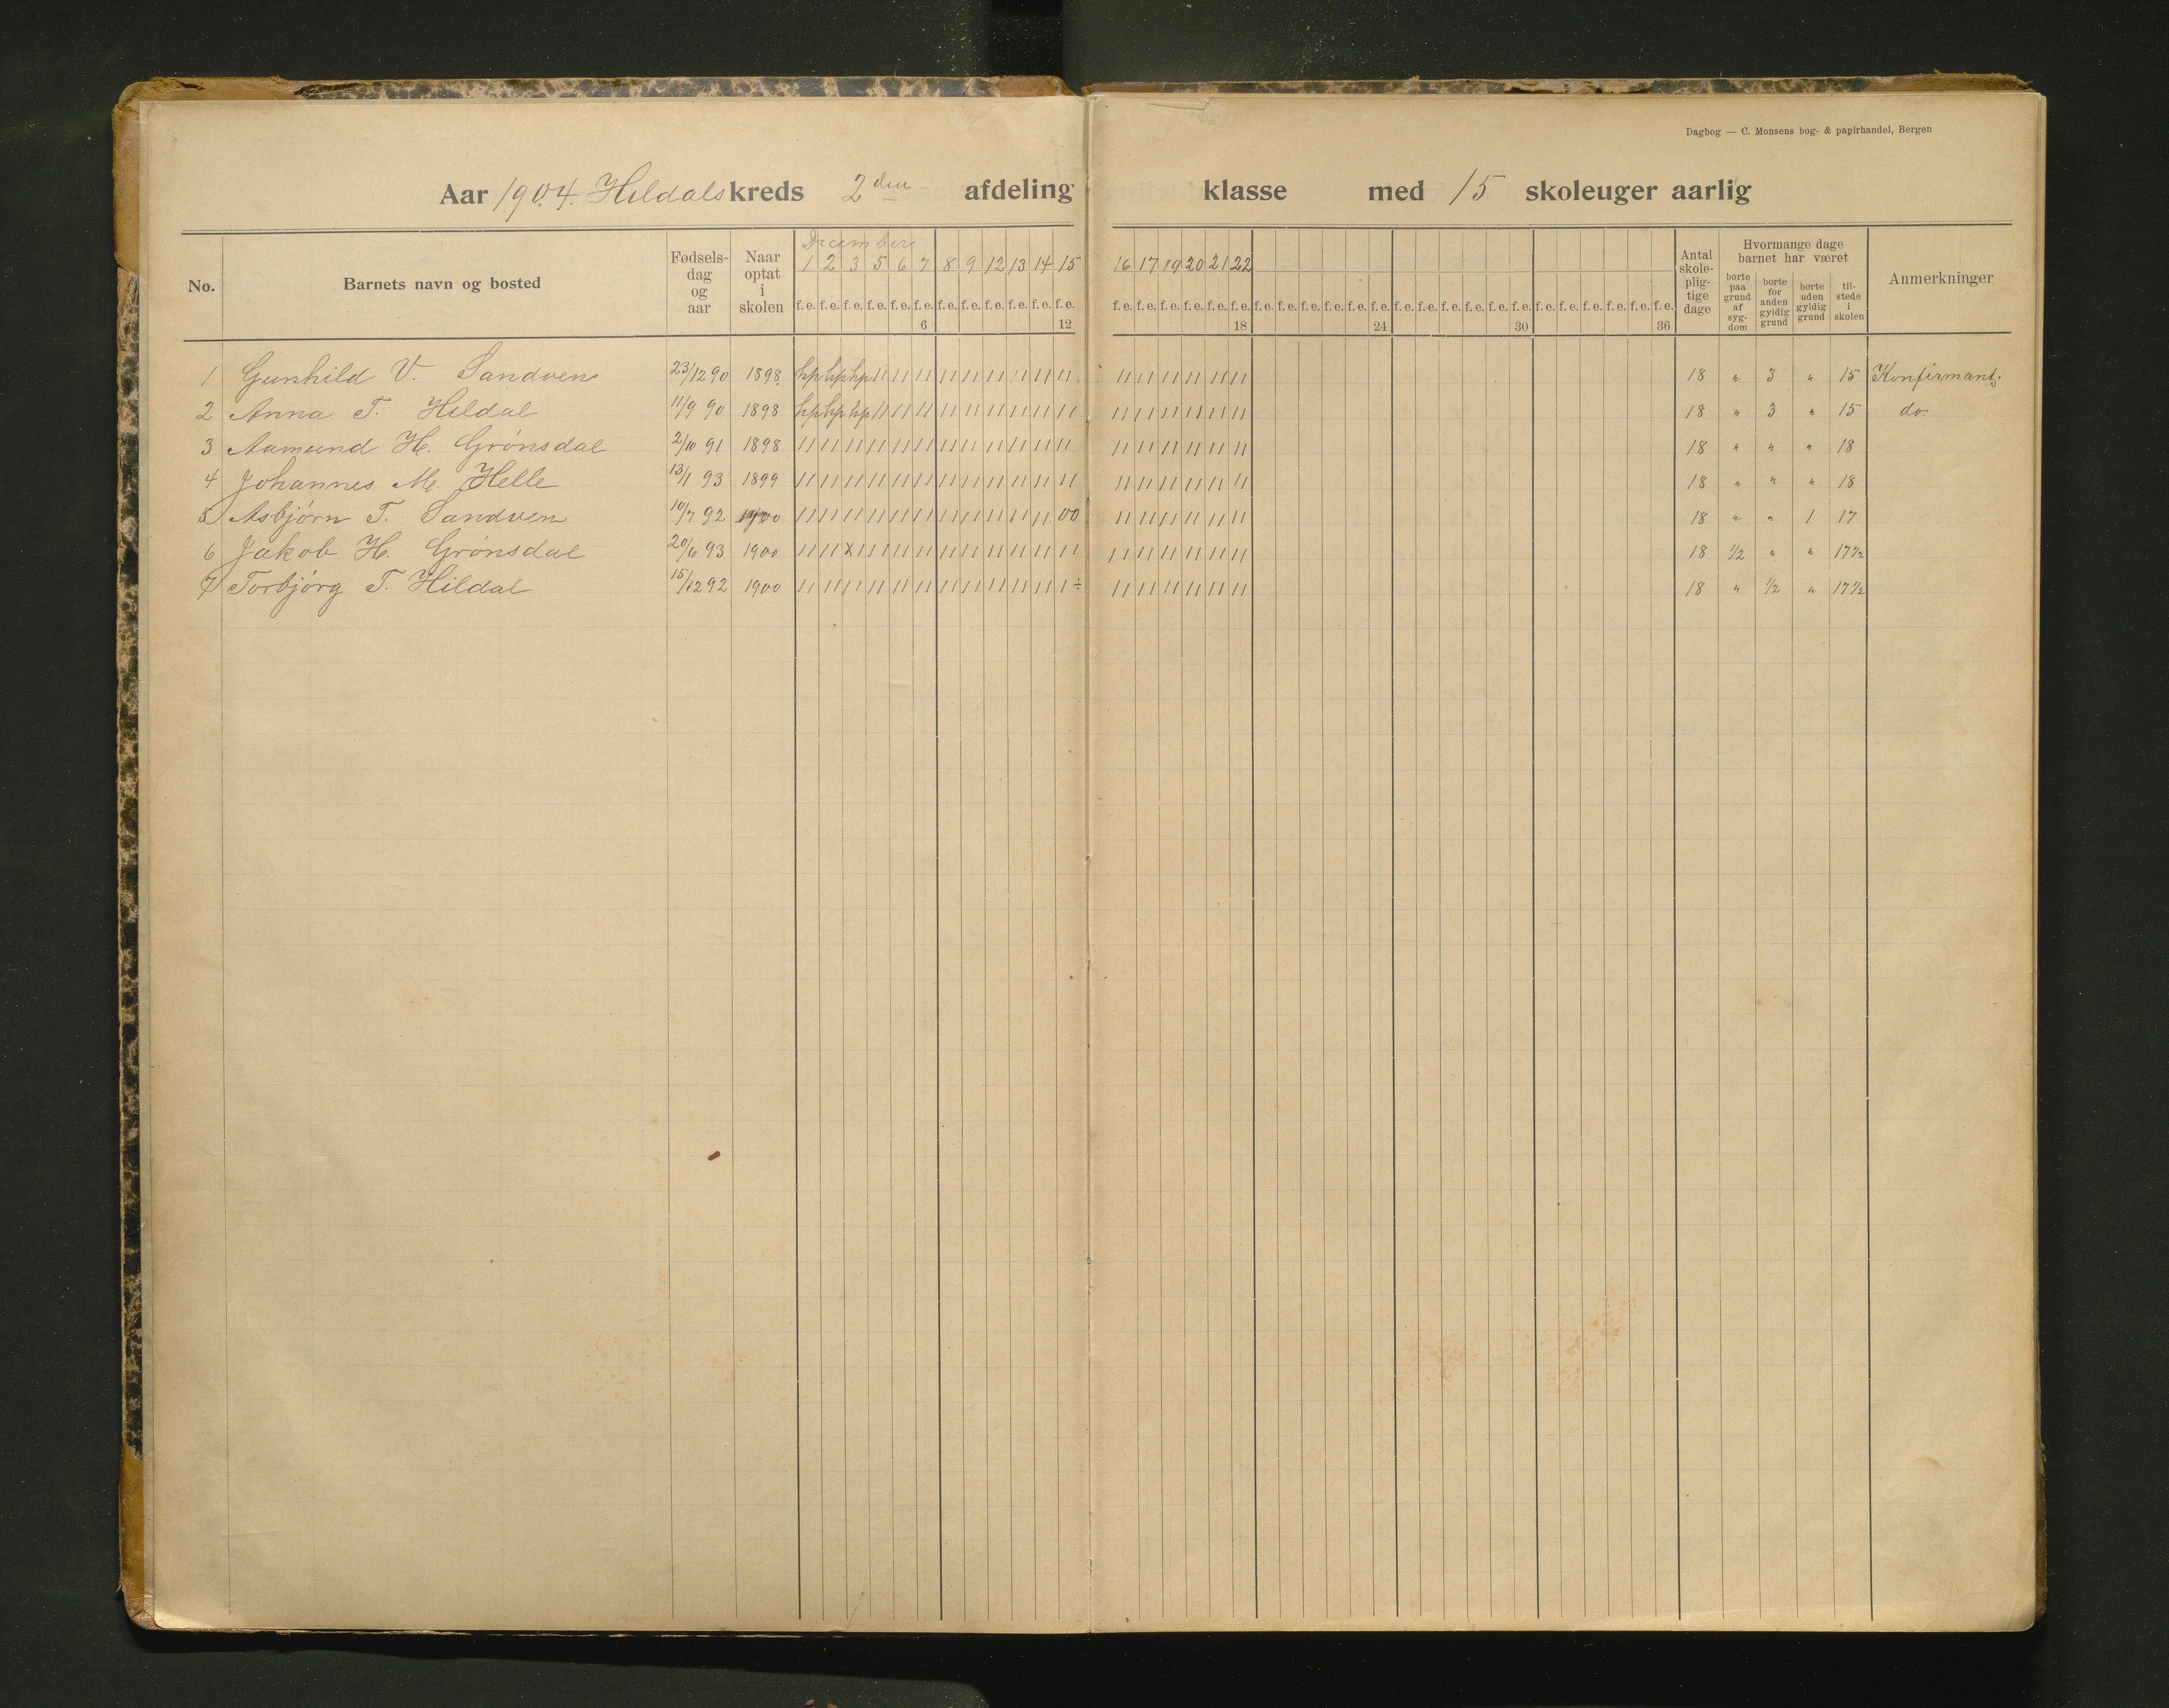 Dagbog — C. Monsens bog- & papirhandel, Bergen
Aar 1904. Hildals kreds 2den afdeling klasse med 15 skoleuger aarlig
No. Barnets navn og bosted Fødsels-dag og aar Naar optat i skolen December Antal skole-plig-tige dage Hvormange dage barnet har været Anmerkninger
1 2 3 5 6 7 8 9 12 13 14 15 16 17 19 20 21 22
borte paa grund af syg-dom borte for anden gyldig grund borte uden gyldig grund til-stede i skolen
f.e. f.e. f.e. f.e. f.e. f.e. f.e. f.e. f.e. f.e. f.e. f.e. f.e. f.e. f.e. f.e. f.e. f.e. f.e. f.e. f.e. f.e. f.e. f.e. f.e. f.e. f.e. f.e. f.e. f.e. f.e. f.e. f.e. f.e. f.e. f.e.
6 12 18 24 30 36
1 Gunhild V. Sandven 23/12 90 1898 hp hp hp 11 11 11 11 11 11 11 11 11 11 11 11 11 11 11 18 " 3 " 15 Konfirmant.
2 Anna T. Hildal 11/9 90 1898 hp hp hp 11 11 11 11 11 11 11 11 11 11 11 11 11 11 11 18 " 3 " 15 do.
3 Aamund H. Grönsdal 2/10 91 1898 11 11 11 11 11 11 11 11 11 11 11 11 11 11 11 11 11 11 18 " " " 18
4 Johannes M. Helle 13/1 93 1899 11 11 11 11 11 11 11 11 11 11 11 11 11 11 11 11 11 11 18 " " " 18
5 Asbjörn T. Sandven 10/7 92 1900 11 11 11 11 11 11 11 11 11 11 11 00 11 11 11 11 11 11 18 " " 1 17
6 Jakob H. Grönsdal 20/6 93 1900 11 11 x1 11 11 11 11 11 11 11 11 11 11 11 11 11 11 11 18 1/2 " " 17 1/2
7 Torbjörg T. Hildal 15/12 92 1900 11 11 11 11 11 11 11 11 11 11 11 1÷ 11 11 11 11 11 11 18 " 1/2 " 17 1/2